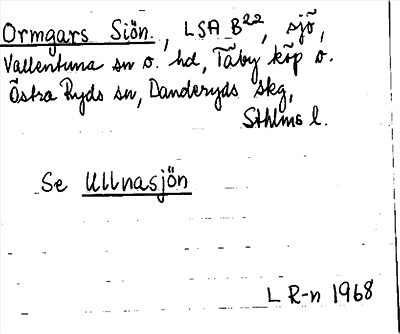 Ormgars Siön., LSA B22, sjö,
Vallentuna sn o. hd, Täby köp o.
Östra Ryds sn, Danderyds skg,
Sthlms l.
Se Ullnasjön
L R-n 1968